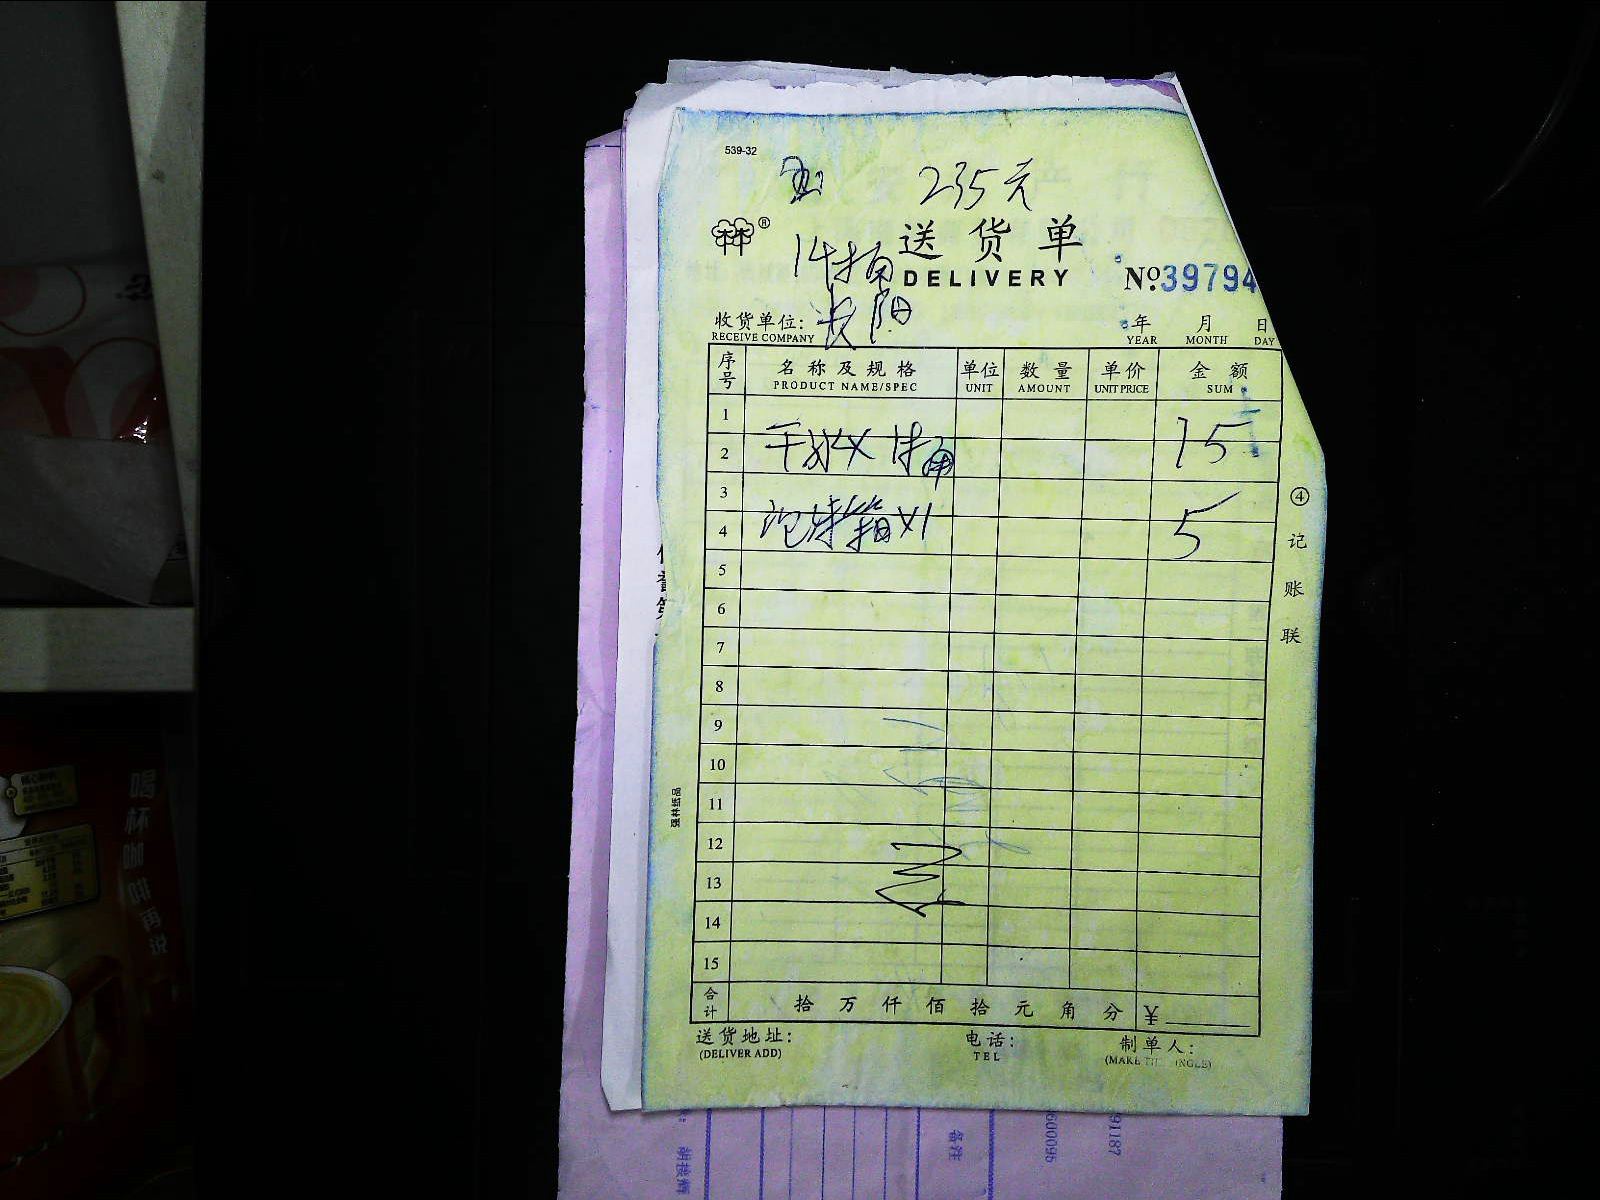 539-32
235元
送货单
DELIVERY
№39794
收货单位:
RECEIVE COMPANY
年 月 日
YEAR MONTH DAY
序号 名称及规格 单位 数量 单价 金额
PRODUCT NAME/SPEC UNIT AMOUNT UNIT PRICE SUM
1
2 15
3
4 泡沫箱X1 5
5
6
7
8
9
10
11
12
13
14
15
合计 拾万仟佰拾元角分 ¥
送货地址: 电话: 制单人:
(DELIVER ADD) TEL
④记账联
强林纸品
备注
600095
91187
喝杯咖啡再说